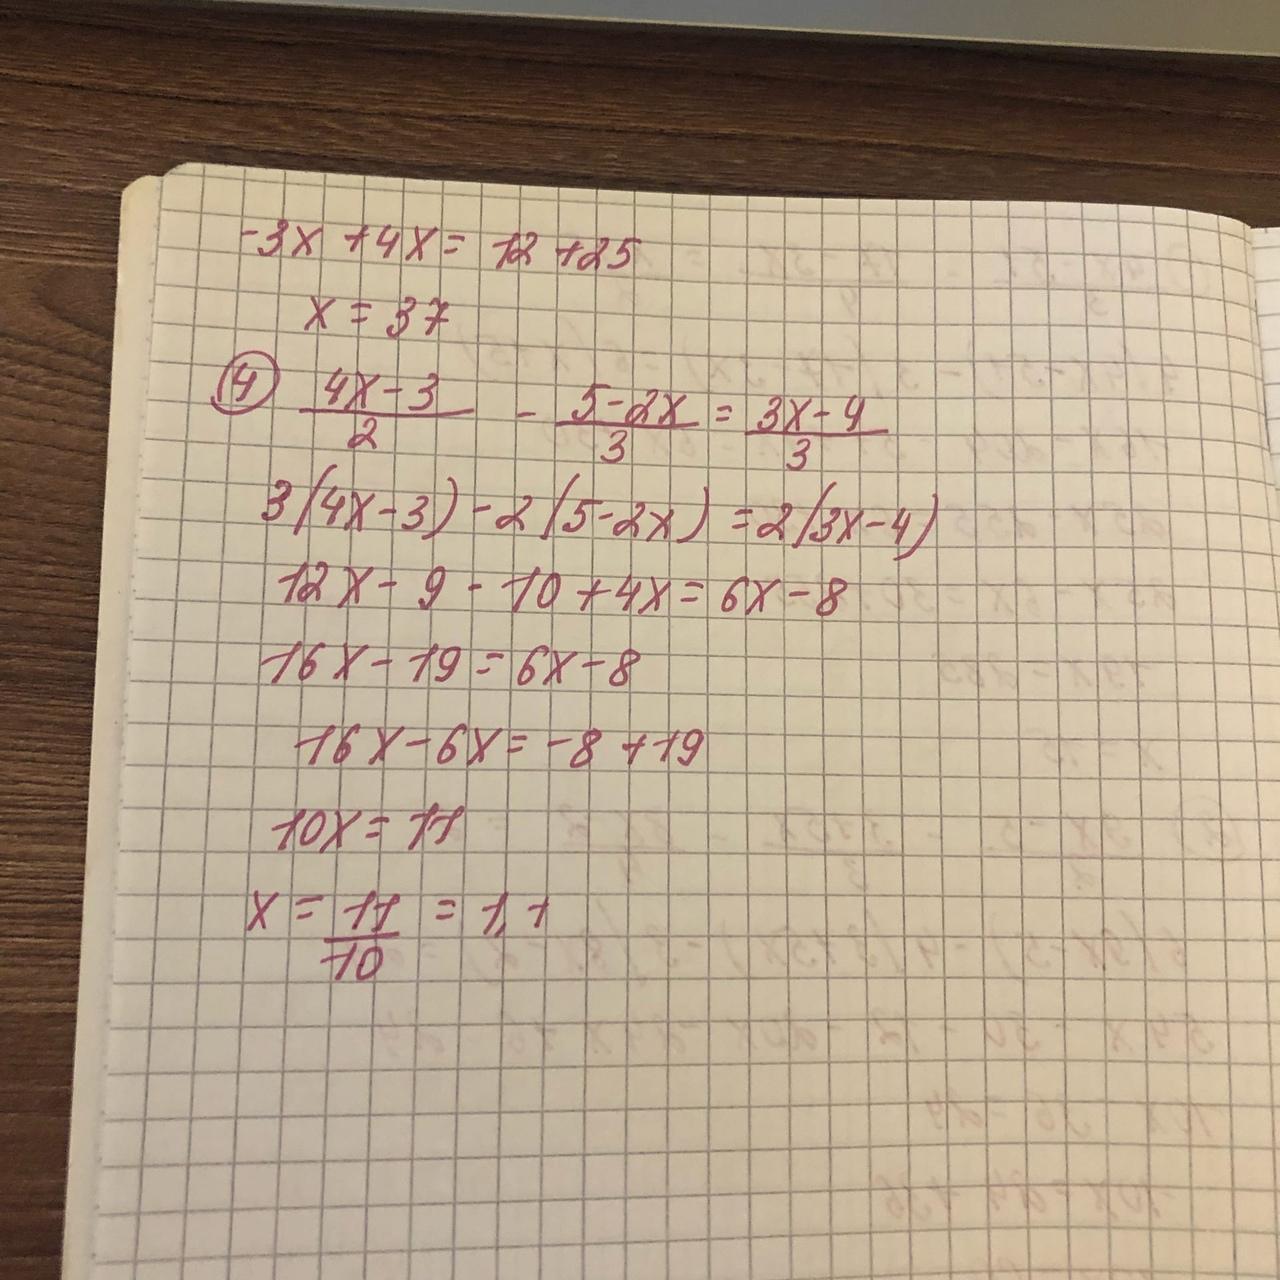 -3x + 4x = 12 + 25
x = 37
④ (4x - 3)/2 - (5 - 2x)/3 = (3x - 4)/3
3(4x - 3) - 2(5 - 2x) = 2(3x - 4)
12x - 9 - 10 + 4x = 6x - 8
16x - 19 = 6x - 8
16x - 6x = -8 + 19
10x = 11
x = 11/10 = 1,1